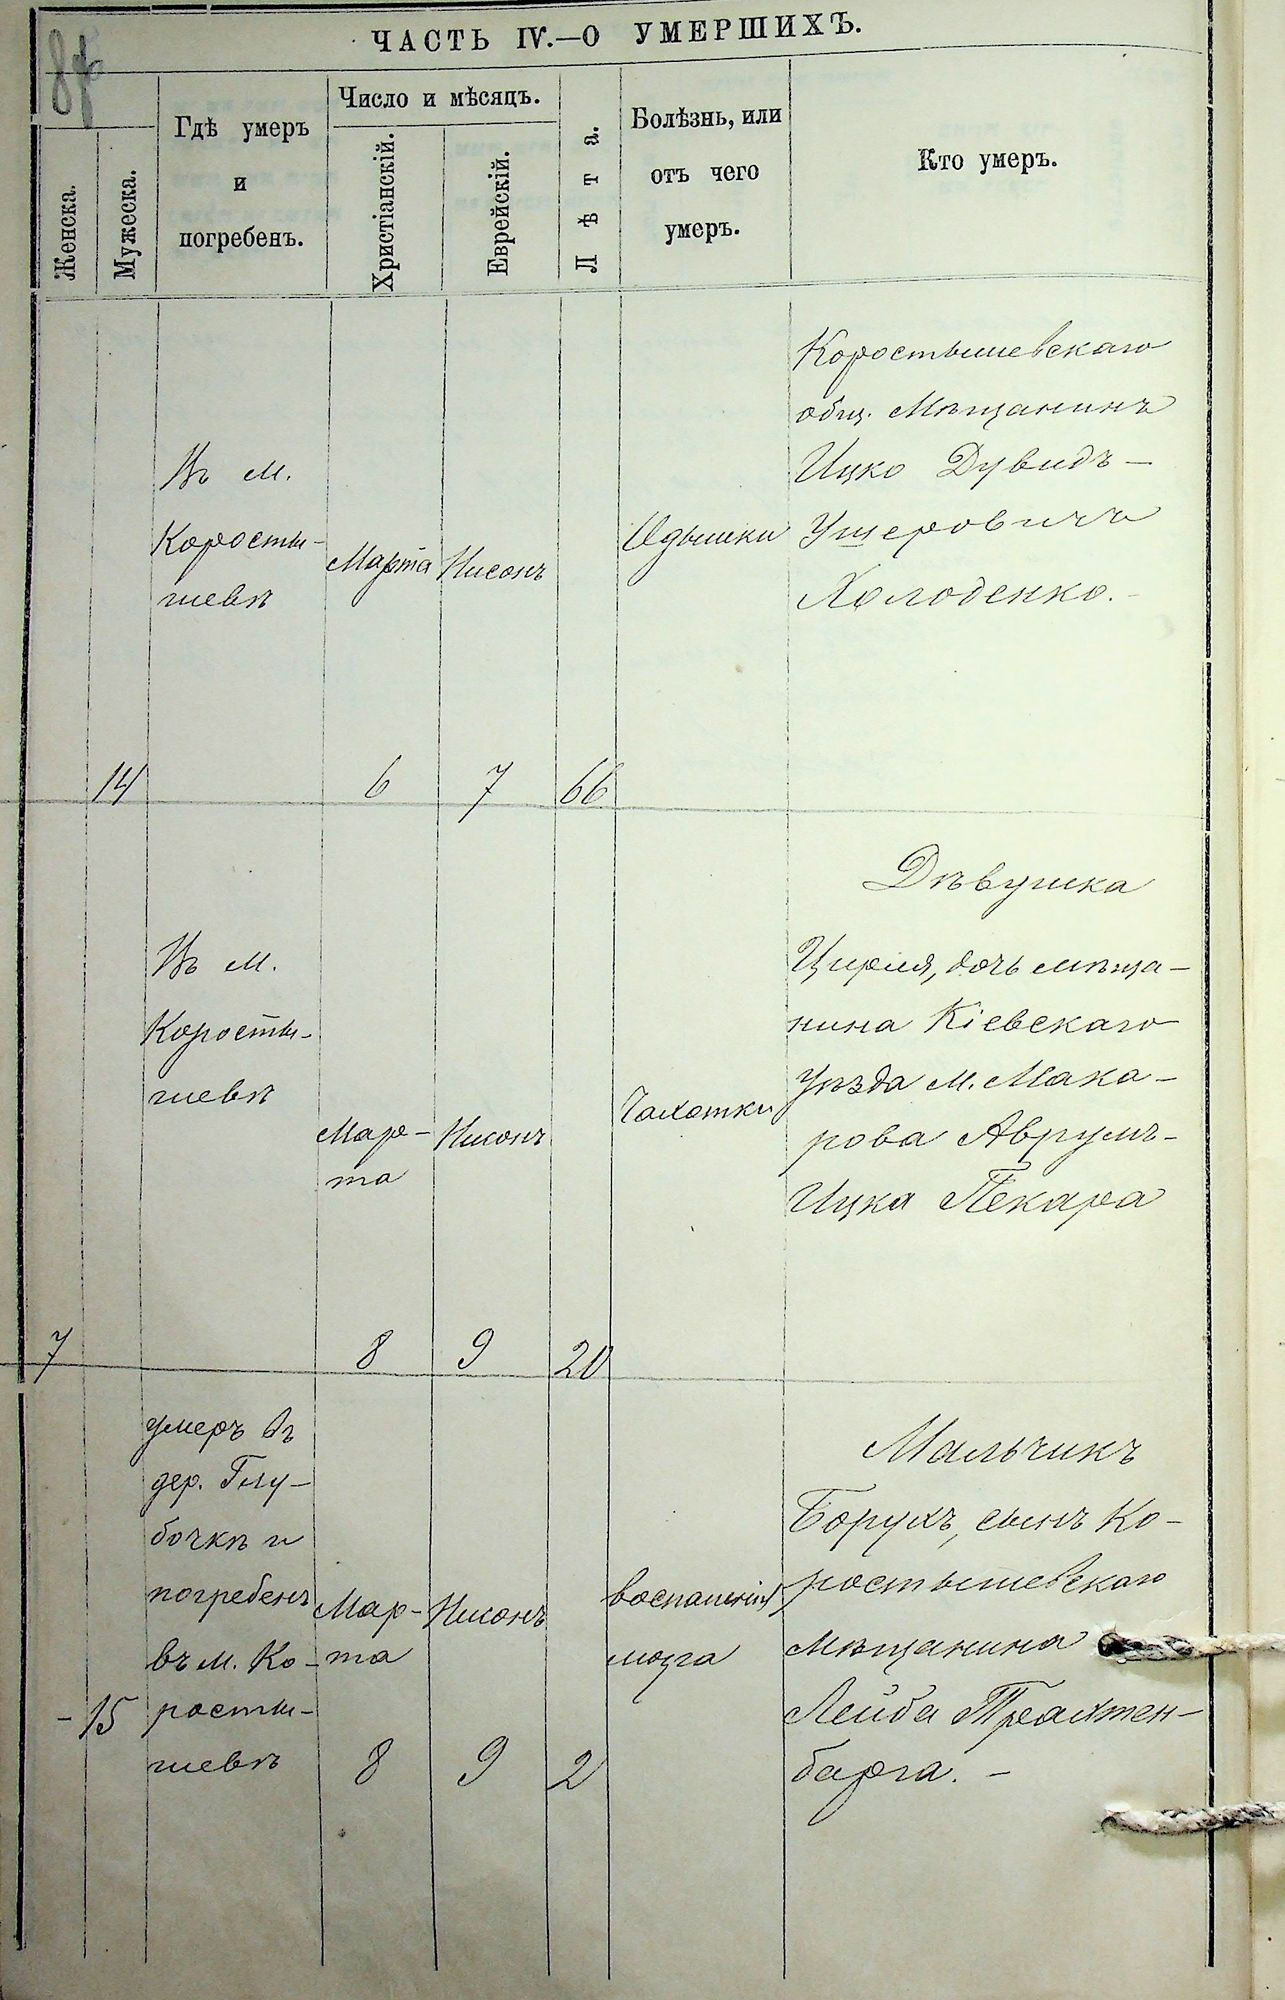 84
ЧАСТЬ IV.—О УМЕРШИХЪ.
Женска.
Мужеска.
Гдѣ умеръ
и
погребенъ.
Число и мѣсяцъ.
Христіанскій.
Еврейскій.
Лѣта.
Болѣзнь, или
отъ чего
умеръ.
Кто умеръ.
14
Въ м.
Коросты-
шевѣ
Марта
6
Нисонъ
7
66
Одышки
Коростышевскаго
общ. Мѣщанинъ
Ицко Дувидъ-
Ушеровичъ
Холоденко.
7
Въ м.
Коросты-
шевѣ
Мар-
та
8
Нисонъ
9
20
Чахотки
Дѣвушка
Цирля, дочь мѣща-
нина Кіевскаго
уѣзда м. Мака-
рова Аврумъ-
Ицка Пекара
- 15
умеръ въ
дер. Глу-
бочкѣ и
погребенъ
въ м. Ко-
росты-
шевѣ
Мар-
та
8
Нисонъ
9
2
воспаленія
мозга
Мальчикъ
Борухъ, сынъ Ко-
ростышевскаго
Мѣщанина
Лейба Трахтен-
барга. -